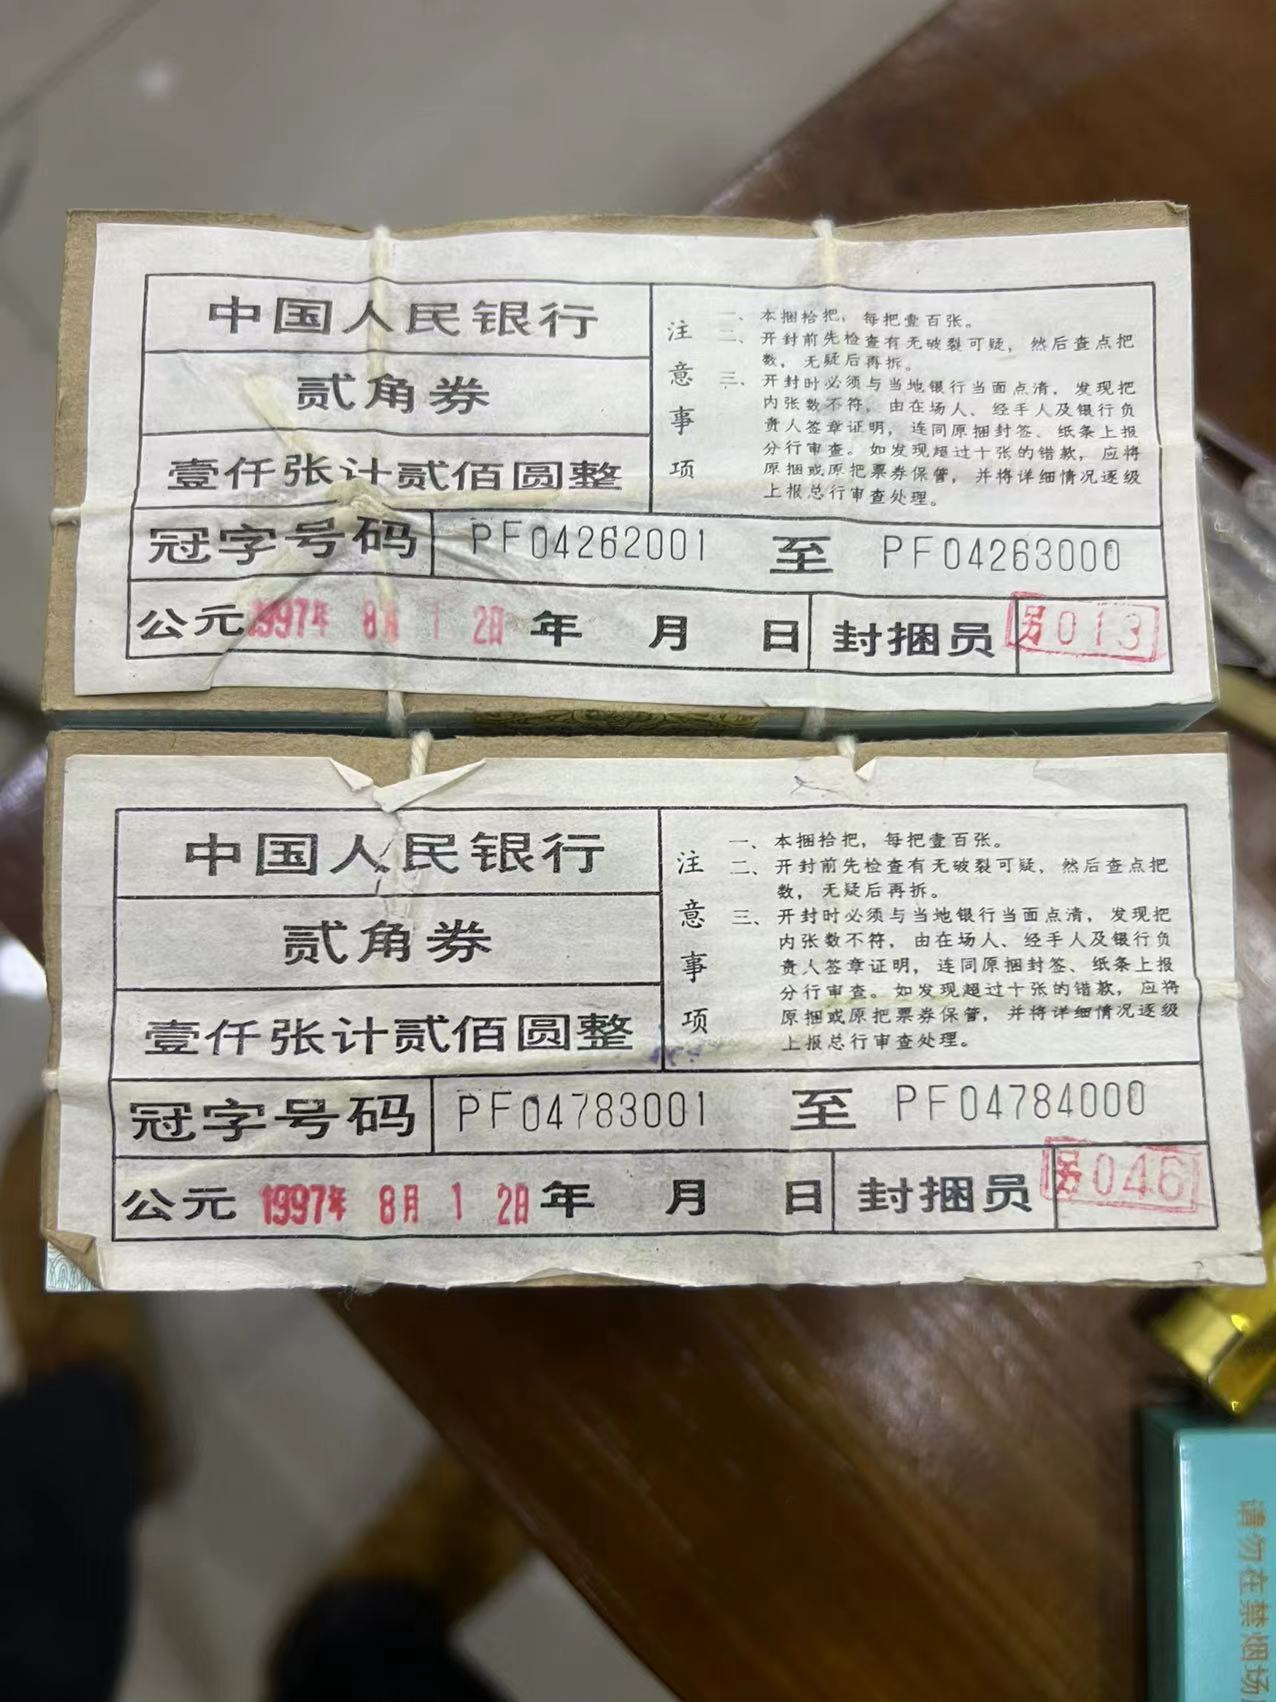 中国人民银行
贰角券
壹仟张计贰佰圆整
注意事项
一、本捆拾把，每把壹百张。
二、开封前先检查有无破裂可疑，然后查点把
数，无疑后再拆。
三、开封时必须与当地银行当面点清，发现把
内张数不符，由在场人、经手人及银行负
责人签章证明，连同原捆封签、纸条上报
分行审查。如发现超过十张的错款，应将
原捆或原把票券保管，并将详细情况逐级
上报总行审查处理。
冠字号码 PF04262001 至 PF04263000
公元 1997年 8月 1 2日 年 月 日 封捆员 另013
中国人民银行
贰角券
壹仟张计贰佰圆整
注意事项
一、本捆拾把，每把壹百张。
二、开封前先检查有无破裂可疑，然后查点把
数，无疑后再拆。
三、开封时必须与当地银行当面点清，发现把
内张数不符，由在场人、经手人及银行负
责人签章证明，连同原捆封签、纸条上报
分行审查。如发现超过十张的错款，应将
原捆或原把票券保管，并将详细情况逐级
上报总行审查处理。
冠字号码 PF04783001 至 PF04784000
公元 1997年 8月 1 2日 年 月 日 封捆员 另046
请勿在禁烟场